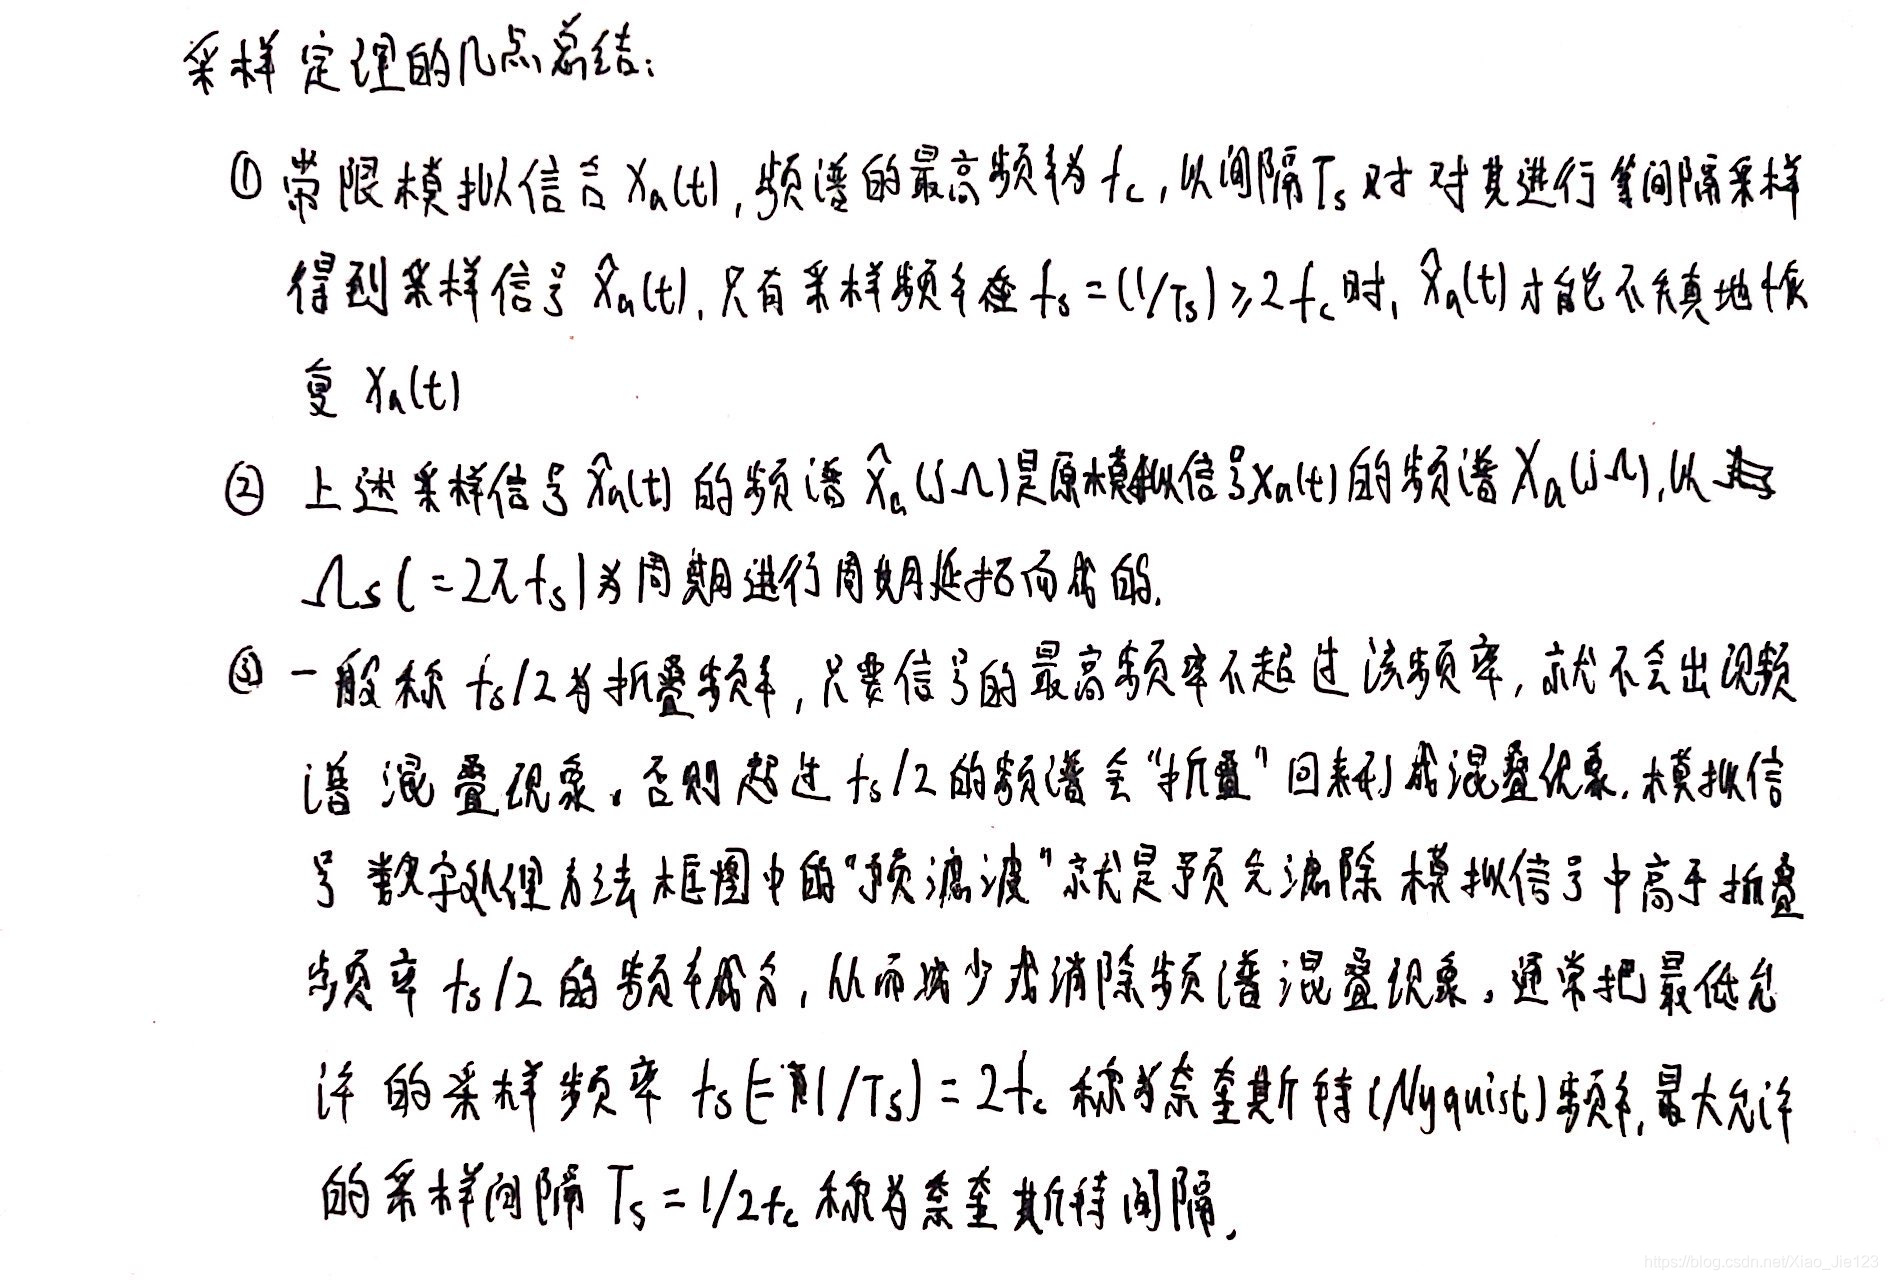 采样定理的几点总结:
① 带限模拟信号 Xa(t), 频谱的最高频率为 fc, 以间隔Ts 对 对其进行等间隔采样
得到采样信号 X̂a(t), 只有采样频率在 fs = (1/Ts) ≥ 2fc 时, X̂a(t) 才能不失真地恢
复 Xa(t)
② 上述采样信号 X̂a(t) 的频谱 X̂a(jΩ)是原模拟信号Xa(t)的频谱 Xa(jΩ), 以
Ωs(=2πfs)为周期进行周期延拓而成的.
③ 一般称 fs/2为折叠频率, 只要信号的最高频率不超过该频率, 就不会出现频
谱混叠现象。否则超过 fs/2的频谱会“折叠”回来形成混叠现象. 模拟信
号数字处理方法框图中的“预滤波”就是预先滤除模拟信号中高于折叠
频率 fs/2 的频率成分, 从而减少或消除频谱混叠现象。通常把最低允
许的采样频率 fs(=1/Ts) = 2fc 称为奈奎斯特(Nyquist)频率, 最大允许
的采样间隔 Ts = 1/2fc 称为奈奎斯特间隔.
https://blog.csdn.net/Xiao_Jie123